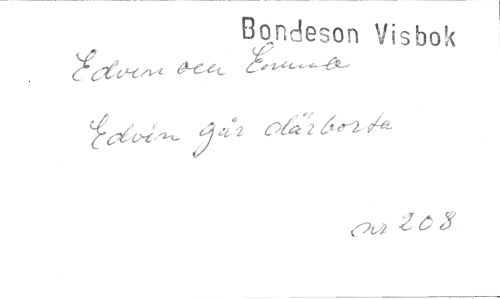 Bondeson Visbok
Edvin och Emma
Edvin går därborta
nr 208